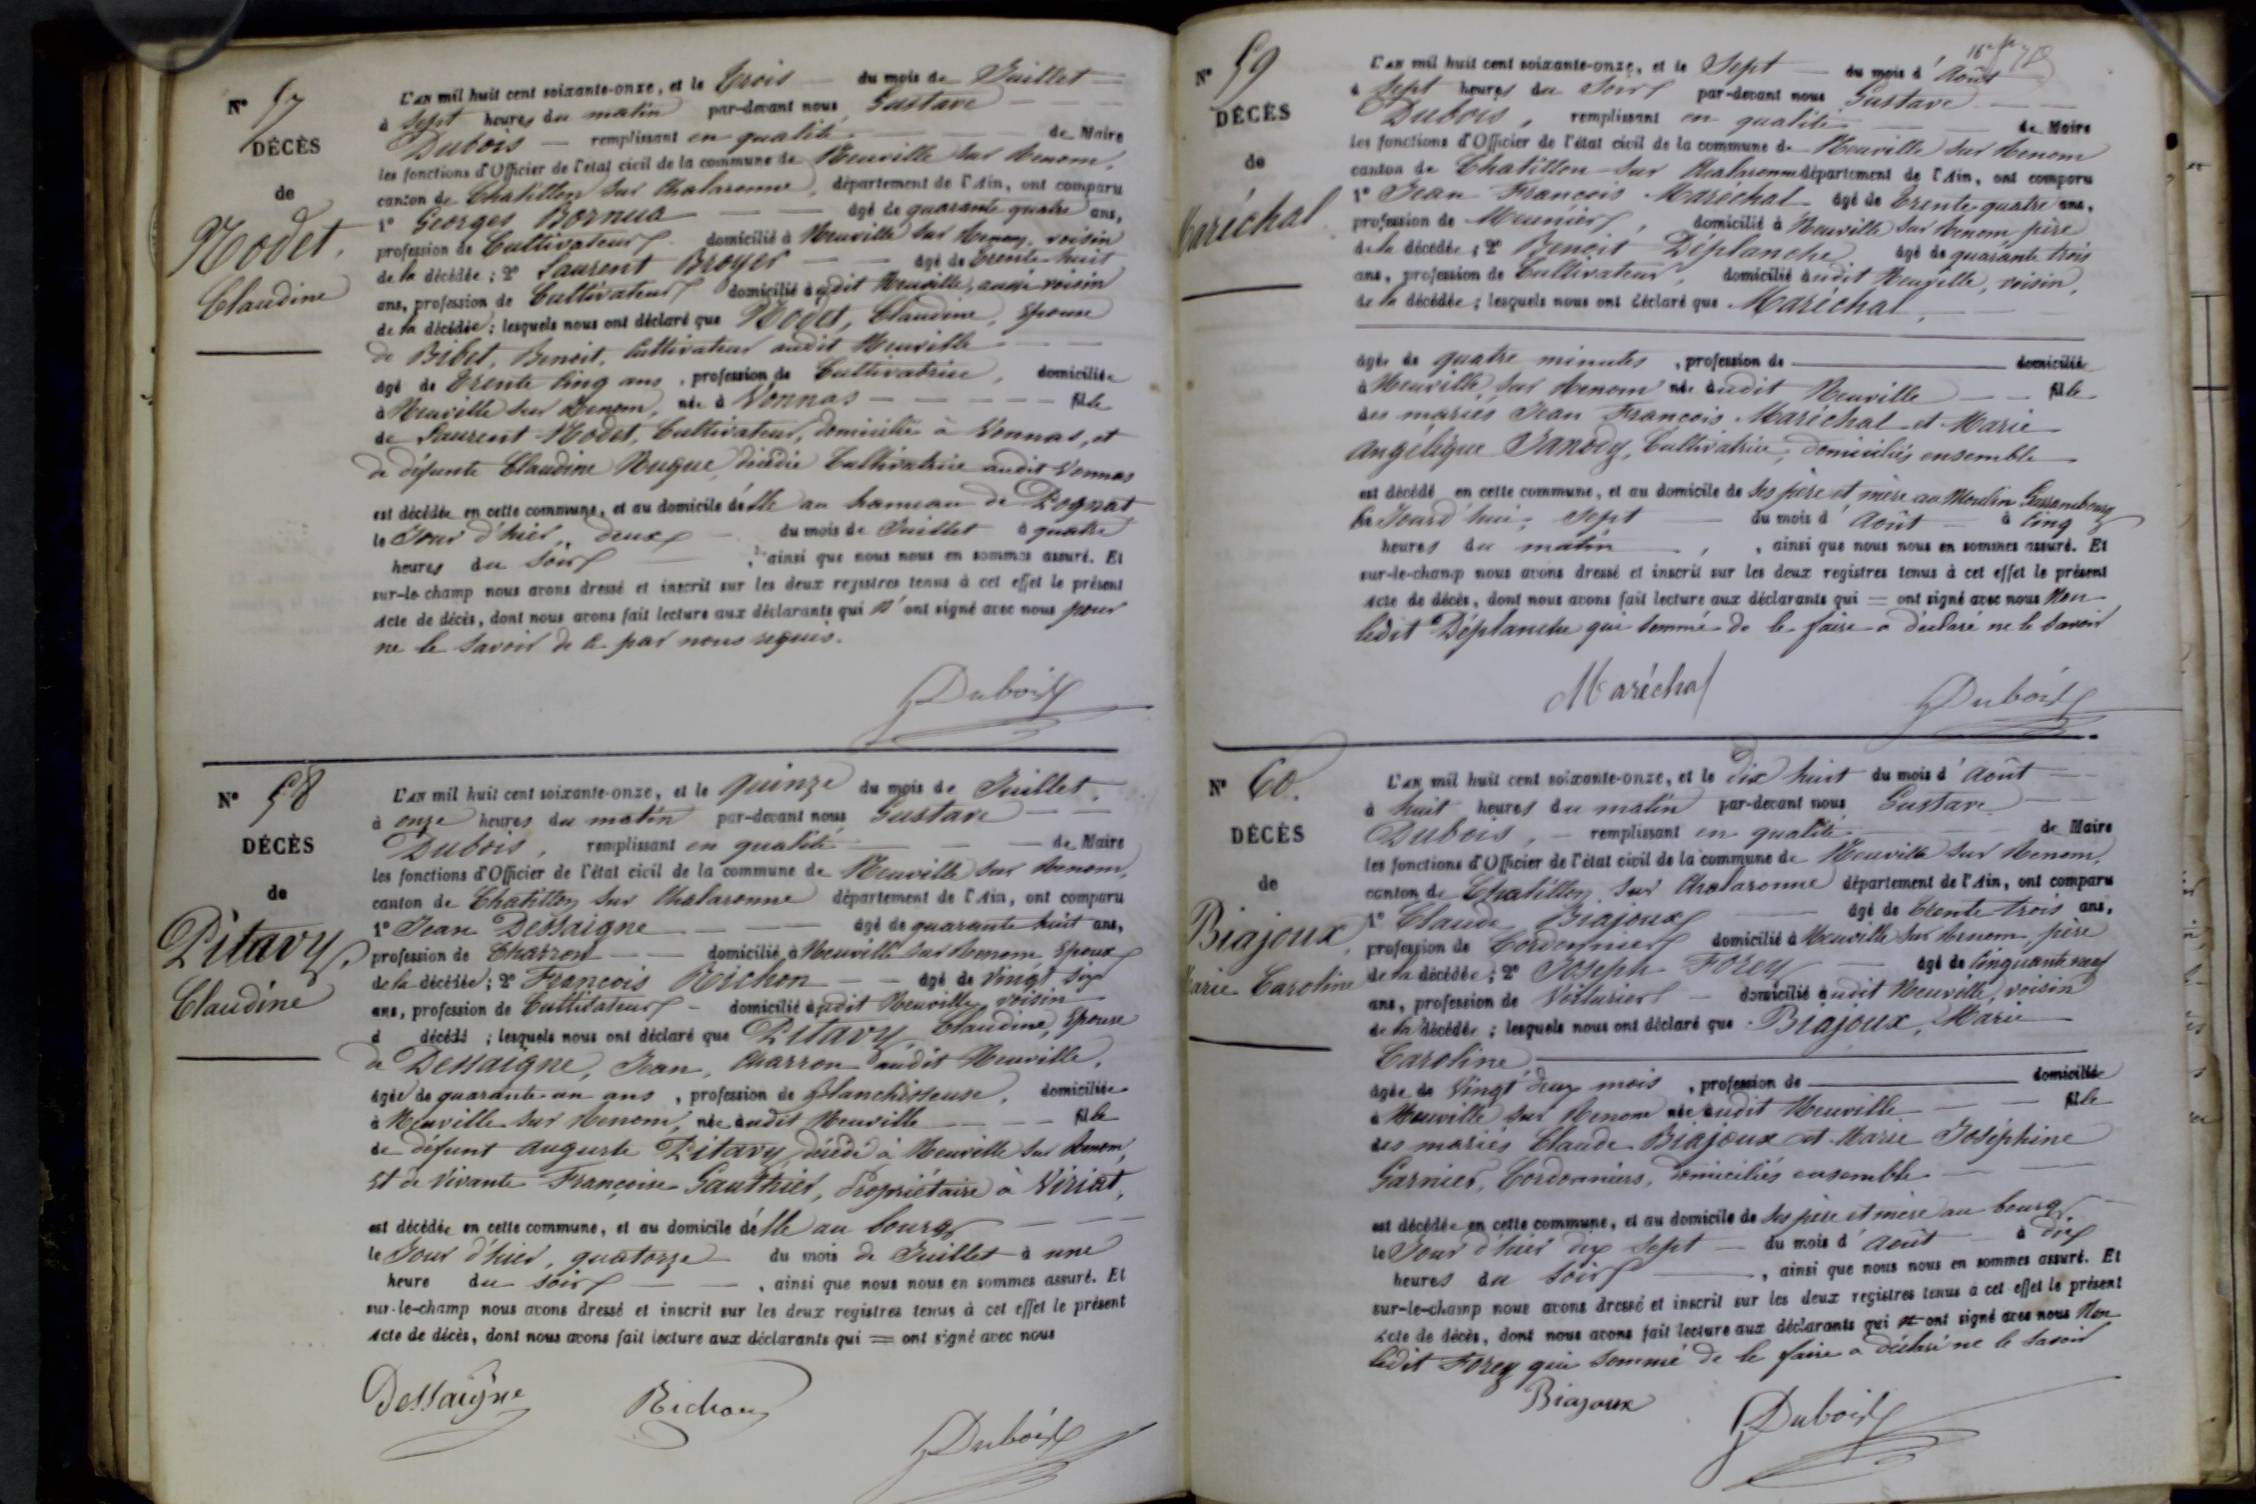 N° 57
DÉCÈS
de
Nodet,
Claudine
L'AN mil huit cent soixante-onze, et le Trois du mois de Juillet
à Sept heures du matin par-devant nous Gustave
Dubois remplissant en qualité de Maire
les fonctions d'Officier de l'état civil de la commune de Neuville sur Renom,
canton de Chatillon sur Chalaronne, département de l'Ain, ont comparu
1° Georges Bornua âgé de quarante quatre ans,
profession de Cultivateur domicilié à Neuville sur Renom, voisin
de la décédée ; 2° Laurent Broyer âgé de trente huit
ans, profession de Cultivateur domicilié audit Neuville, aussi voisin
de la décédée ; lesquels nous ont déclaré que Nodet, Claudine, Epouse
de Bibet, Benoit, Cultivateur audit Neuville
âgé de Trente Cinq ans, profession de Cultivatrice, domiciliée
à Neuville sur Renom, née à Vonnas fille
de Laurent Nodet, Cultivateur, domicilié à Vonnas, et
de défunte Claudine Nugue, décédée Cultivatrice audit Vonnas
est décédée en cette commune, et au domicile d'elle au hameau de Pognat
le Jour d'hier, deux du mois de Juillet à quatre
heures du soir, ainsi que nous nous en sommes assuré. Et
sur-le-champ nous avons dressé et inscrit sur les deux registres tenus à cet effet le présent
Acte de décès, dont nous avons fait lecture aux déclarants qui n'ont signé avec nous pour
ne le savoir de ce par nous requis.
Dubois
N° 58
DÉCÈS
de
Pitavy,
Claudine
L'AN mil huit cent soixante-onze, et le quinze du mois de Juillet,
à onze heures du matin par-devant nous Gustave
Dubois, remplissant en qualité de Maire
les fonctions d'Officier de l'état civil de la commune de Neuville sur Renom,
canton de Chatillon sur Chalaronne département de l'Ain, ont comparu
1° Jean Dessaigne âgé de quarante huit ans,
profession de Charron domicilié à Neuville sur Renom, Epoux
de la décédée ; 2° François Richon âgé de Vingt six
ans, profession de Cultivateur domicilié audit Neuville, voisin
d décédé ; lesquels nous ont déclaré que Pitavy Claudine, Epouse
de Dessaigne, Jean, Charron audit Neuville,
âgée de quarante un ans, profession de Blanchisseuse, domiciliée
à Neuville sur Renom, née audit Neuville fille
de défunt Auguste Pitavy, décédé à Neuville sur Renom,
Et de Vivante Françoise Gauthier, Propriétaire à Viriat,
est décédée en cette commune, et au domicile d'elle au bourg
le Jour d'hier, quatorze du mois de Juillet à une
heure du soir, ainsi que nous nous en sommes assuré. Et
sur-le-champ nous avons dressé et inscrit sur les deux registres tenus à cet effet le présent
Acte de décès, dont nous avons fait lecture aux déclarants qui = ont signé avec nous
Dessaigne Richon
Dubois
N° 59
DÉCÈS
de
Maréchal
L'AN mil huit cent soixante-onze, et le Sept du mois d'Août
à Sept heures du Soir par-devant nous Gustave
Dubois, remplissant en qualité de Maire
les fonctions d'Officier de l'état civil de la commune de Neuville sur Renom
canton de Chatillon sur Chalaronne département de l'Ain, ont comparu
1° Jean François Maréchal âgé de Trente quatre ans,
profession de Meunier, domicilié à Neuville sur Renom, père
de la décédée ; 2° Benoit Déplanche âgé de quarante trois
ans, profession de Cultivateur, domicilié audit Neuville, voisin,
de la décédée ; lesquels nous ont déclaré que Maréchal,
âgée de quatre minutes, profession de domiciliée
à Neuville sur Renom née audit Neuville fille
des mariés Jean François Maréchal et Marie
Angélique Janody, Cultivatrice, domiciliés ensemble
est décédé en cette commune, et au domicile de ses père et mère au Moulin
Jourd'hui, Sept du mois d'Août à Cinq
heures du matin, ainsi que nous nous en sommes assuré. Et
sur-le-champ nous avons dressé et inscrit sur les deux registres tenus à cet effet le présent
Acte de décès, dont nous avons fait lecture aux déclarants qui = ont signé avec nous Non
ledit Déplanche qui sommé de le faire a déclaré ne le savoir
Maréchal Dubois
N° 60.
DÉCÈS
de
Biajoux,
Marie Caroline
L'AN mil huit cent soixante-onze, et le Dix huit du mois d'Août
à huit heures du matin par-devant nous Gustave
Dubois, remplissant en qualité de Maire
les fonctions d'Officier de l'état civil de la commune de Neuville sur Renom,
canton de Chatillon sur Chalaronne département de l'Ain, ont comparu
1° Claude Biajoux âgé de trente trois ans,
profession de Cordonnier domicilié à Neuville sur Renom, père
de la décédée ; 2° Joseph Forey âgé de Cinquante neuf
ans, profession de Voiturier domicilié audit Neuville, voisin
de la décédée ; lesquels nous ont déclaré que Biajoux, Marie
Caroline
âgée de Vingt deux mois, profession de domiciliée
à Neuville sur Renom née audit Neuville fille
des mariés Claude Biajoux et Marie Joséphine
Garnier, Cordonniers, domiciliés ensemble
est décédée en cette commune, et au domicile de ses père et mère au bourg
le Jour d'hier dix sept du mois d'Août à dix
heures du soir, ainsi que nous nous en sommes assuré. Et
sur-le-champ nous avons dressé et inscrit sur les deux registres tenus à cet effet le présent
Acte de décès, dont nous avons fait lecture aux déclarants qui ont signé avec nous Non
ledit Forey qui sommé de le faire a déclaré ne le savoir
Biajoux Dubois